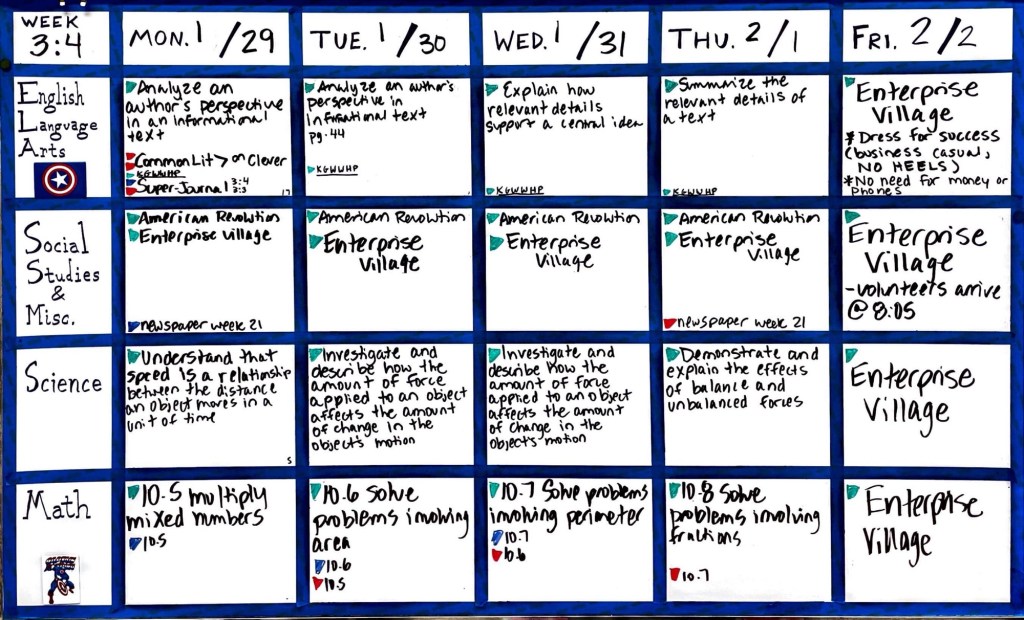 WEEK
3:4
MON. 1/29
TUE. 1/30
WED. 1/31
THU. 2/1
FRI. 2/2
English
Language
Arts
Analyze an
author's perspective
in an informational
text
CommonLit > on Clever
KGWWHP
Super-Journal 3:4
3:3
17
Analyze an author's
perspective in
Infirmational text
pg. 44
KGWWHP
Explain how
relevant details
support a central idea
KGWWHP
Summarize the
relevant details of
a text
KGWWHP
Enterprise
Village
* Dress for success
(business casual,
NO HEELS)
* No need for money or
Phones
Social
Studies
&
Misc.
American Revolution
Enterprise Village
newspaper week 21
American Revolution
Enterprise
Village
American Revolution
Enterprise
Village
American Revolution
Enterprise
Village
newspaper week 21
Enterprise
Village
-volunteers arrive
@ 8:05
Science
Understand that
speed is a relationship
between the distance
an object moves in a
unit of time
5
Investigate and
describe how the
amount of force
applied to an object
affects the amount
of change in the
object's motion
Investigate and
describe how the
amount of force
applied to an object
affects the amount
of change in the
object's motion
Demonstrate and
explain the effects
of balance and
unbalanced forces
Enterprise
Village
Math
10.5 multiply
mixed numbers
10.5
10.6 Solve
problems involving
area
10.6
10.5
10.7 Solve problems
involving perimeter
10.7
10.6
10.8 Solve
problems involving
fractions
10.7
Enterprise
Village